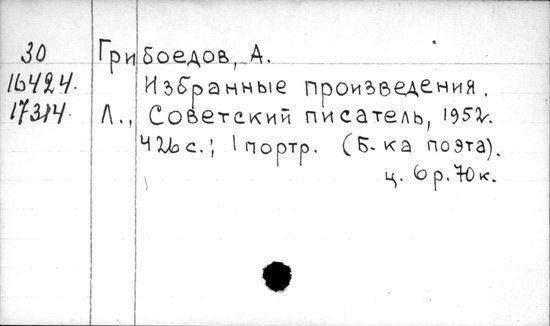 30 Грибоедов, А.
16424. Избранные произведения.
17314. Л., Советский писатель, 1952.
426 с.; 1 портр. (Б-ка поэта).
ц. 6 р. 70 к.